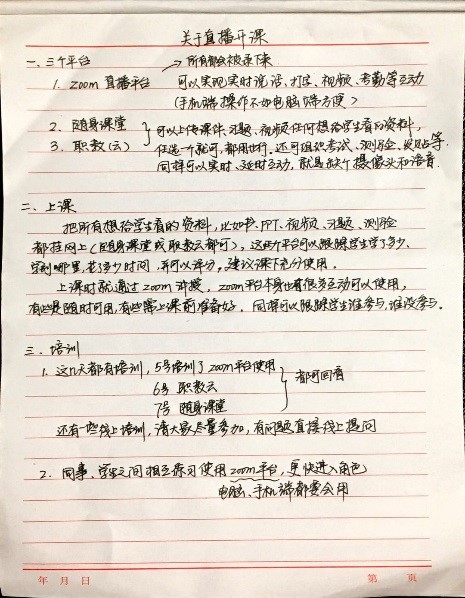 关于直播开课
一、三个平台 → 所有都会被录下来
1. zoom 直播平台 可以实现实时说话、打字、视频、考勤等互动
(手机端操作不如电脑端方便)
2. 随身课堂 } 可以上传课件、习题、视频任何想给学生看的资料,
3. 职教(云) 任选一个就可,都用也行。还可组织考试、测验、发贴等.
同样可以实时、延时互动,就是缺个摄像头和语音.
二、上课
把所有想给学生看的资料,比如书、PPT、视频、习题、测验
都挂网上(随身课堂或职教云都可),这两个平台可以跟踪学生学了多少、
学到哪里,花了多少时间,并可以评分,建议课下充分使用.
上课时就通过zoom讲授。zoom平台本身也有很多互动可以使用,
有些是随时可用,有些需上课前准备好。同样可以跟踪学生谁参与,谁没参与。
三、培训
1. 这几天都有培训,5号培训了zoom平台使用
6号 职教云 } 都可回看
7号 随身课堂
还有一些线上培训,请大家尽量参加,有问题直接线上提问
2. 同事、学生之间相互练习使用zoom平台,更快进入角色
电脑、手机端都要会用
年 月 日 第 页